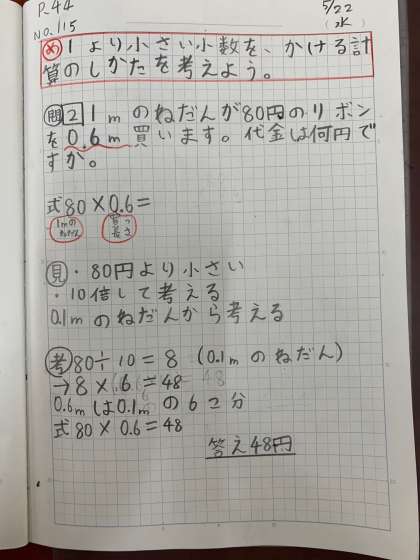 P.44
No.115
5/22
(水)
め 1より小さい小数を、かける計
算のしかたを考えよう。
問 2 1mのねだんが80円のリボン
を0.6m買います。代金は何円で
すか。
式80×0.6=
1mの
ねだん
買う
長さ
見・80円より小さい
・10倍して考える
0.1mのねだんから考える
考80÷10=8 (0.1mのねだん)
→8×6=48
0.6mは0.1mの6コ分
式80×0.6=48
答え48円